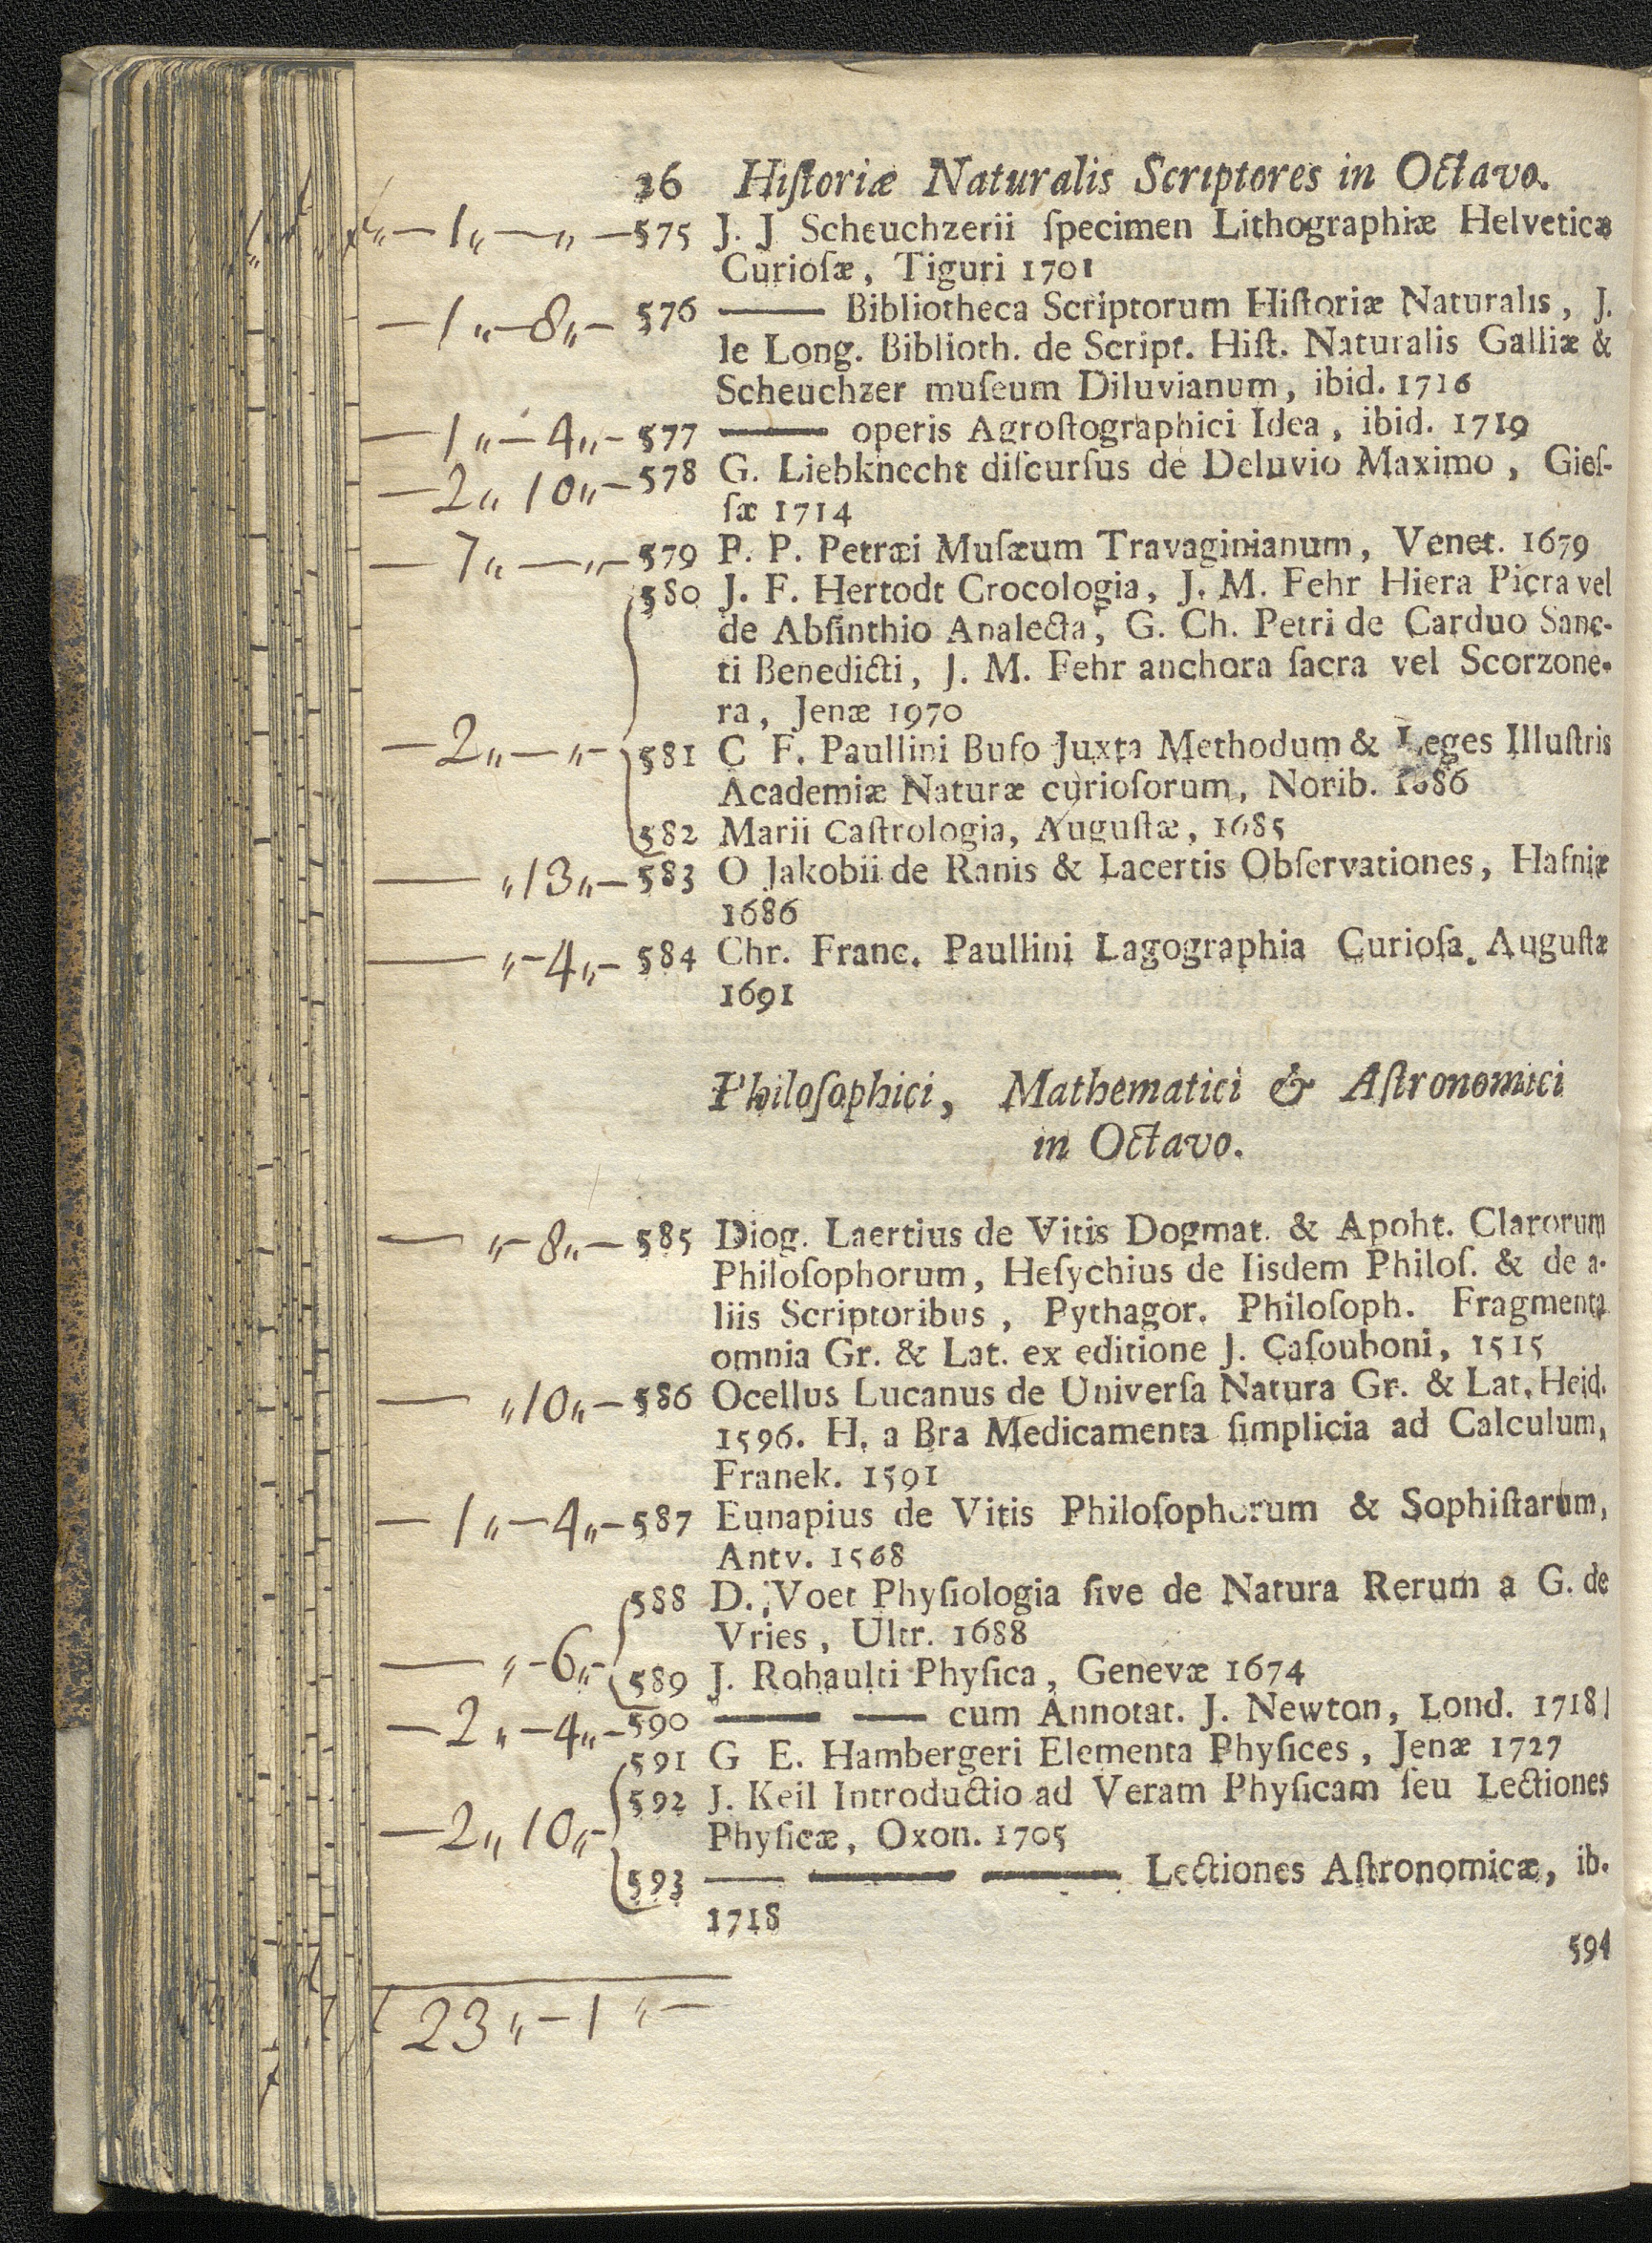 26 Hiſtoriæ Naturalis Scriptores in Octavo.
—1„—„—575 J. J Scheuchzerii ſpecimen Lithographiæ Helveticæ
Curioſæ, Tiguri 1701
—1„—8„— 576 —— Bibliotheca Scriptorum Hiſtoriæ Naturalis, J.
le Long. Biblioth. de Script. Hiſt. Naturalis Galliæ &
Scheuchzer muſeum Diluvianum, ibid. 1716
—1„—4„— 577 —— operis Agroſtographici Idea, ibid. 1719
—2„10„— 578 G. Liebknecht diſcurſus de Deluvio Maximo, Gieſ-
ſæ 1714
—7„—„— 579 P. P. Petræi Muſæum Travaginianum, Venet. 1679
580 J. F. Hertodt Crocologia, J. M. Fehr Hiera Picra vel
de Abſinthio Analecta, G. Ch. Petri de Carduo Sanc-
ti Benedicti, J. M. Fehr anchora ſacra vel Scorzone-
ra, Jenæ 1970
—2„—„— 581 C F. Paullini Bufo Juxta Methodum & Leges Illuſtris
Academiæ Naturæ curioſorum, Norib. 1686
582 Marii Caſtrologia, Auguſtæ, 1685
— „13„— 583 O Jakobii de Ranis & Lacertis Obſervationes, Hafniæ
1686
— „—4„— 584 Chr. Franc. Paullini Lagographia Curioſa. Auguſtæ
1691
Philoſophici, Mathematici & Aſtronomici
in Octavo.
— „—8„— 585 Diog. Laertius de Vitis Dogmat. & Apoht. Clarorum
Philoſophorum, Heſychius de Iisdem Philoſ. & de a-
liis Scriptoribus, Pythagor. Philoſoph. Fragmenta
omnia Gr. & Lat. ex editione J. Caſouboni, 1515
— „10„— 586 Ocellus Lucanus de Univerſa Natura Gr. & Lat. Heid.
1596. H. a Bra Medicamenta ſimplicia ad Calculum,
Franek. 1591
—1„—4„— 587 Eunapius de Vitis Philoſophorum & Sophiſtarum,
Antv. 1568
588 D. Voet Phyſiologia ſive de Natura Rerum a G. de
Vries, Ultr. 1688
— „—6„— 589 J. Rohaulti Phyſica, Genevæ 1674
—2„—4„— 590 —— —— cum Annotat. J. Newton, Lond. 1718
591 G E. Hambergeri Elementa Phyſices, Jenæ 1727
592 J. Keil Introductio ad Veram Phyſicam ſeu Lectiones
—2„10„— Phyſicæ, Oxon. 1705
593 —— —— —— Lectiones Aſtronomicæ, ib.
1718
594
23„—1„—